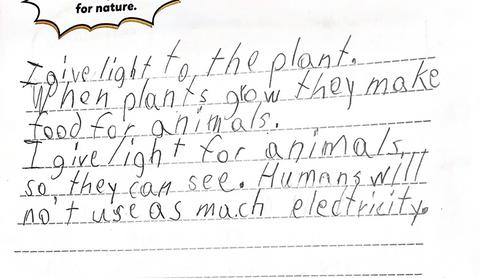 for nature.
I give light to the plant.
When plants grow they make
food for animals.
I give light for animals
so they can see. Humans will
no't use as mach electricity.